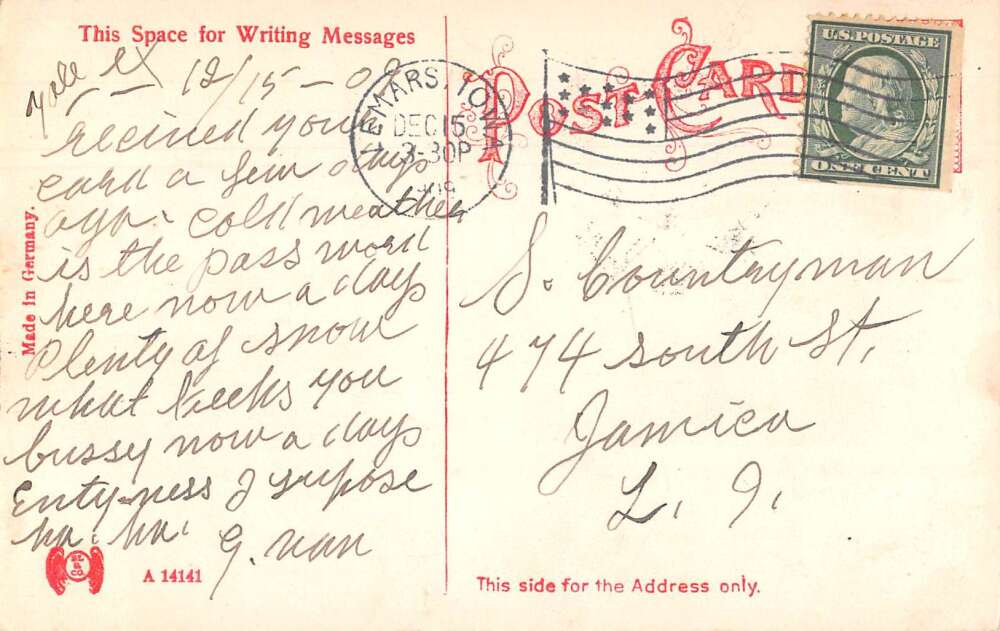 This Space for Writing Messages
12/15-0
recieved your
card a few days
ago. cold weather
is the pass word
here now a days
Plenty of snow
what keeks you
bussy now a days
Enty-ness I supose
ha. ha.
G. van
Made in Germany.
A 14141
POST CARD
LEMARS, IOWA
DEC 15
3-30P
U.S. POSTAGE
ONE CENT
S. Countryman
474 south St.
Jamica
L. I.
This side for the Address only.